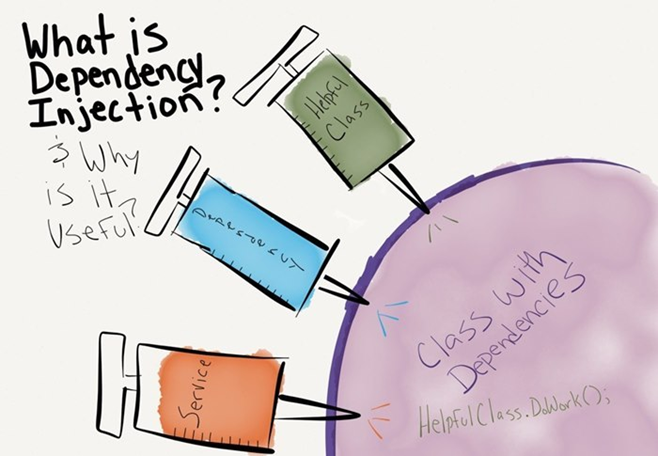 What is
Dependency
Injection?
& Why
is it
Useful?
Helpful
Class
Dependency
Service
Class with
Dependencies
HelpfulClass.DoWork();